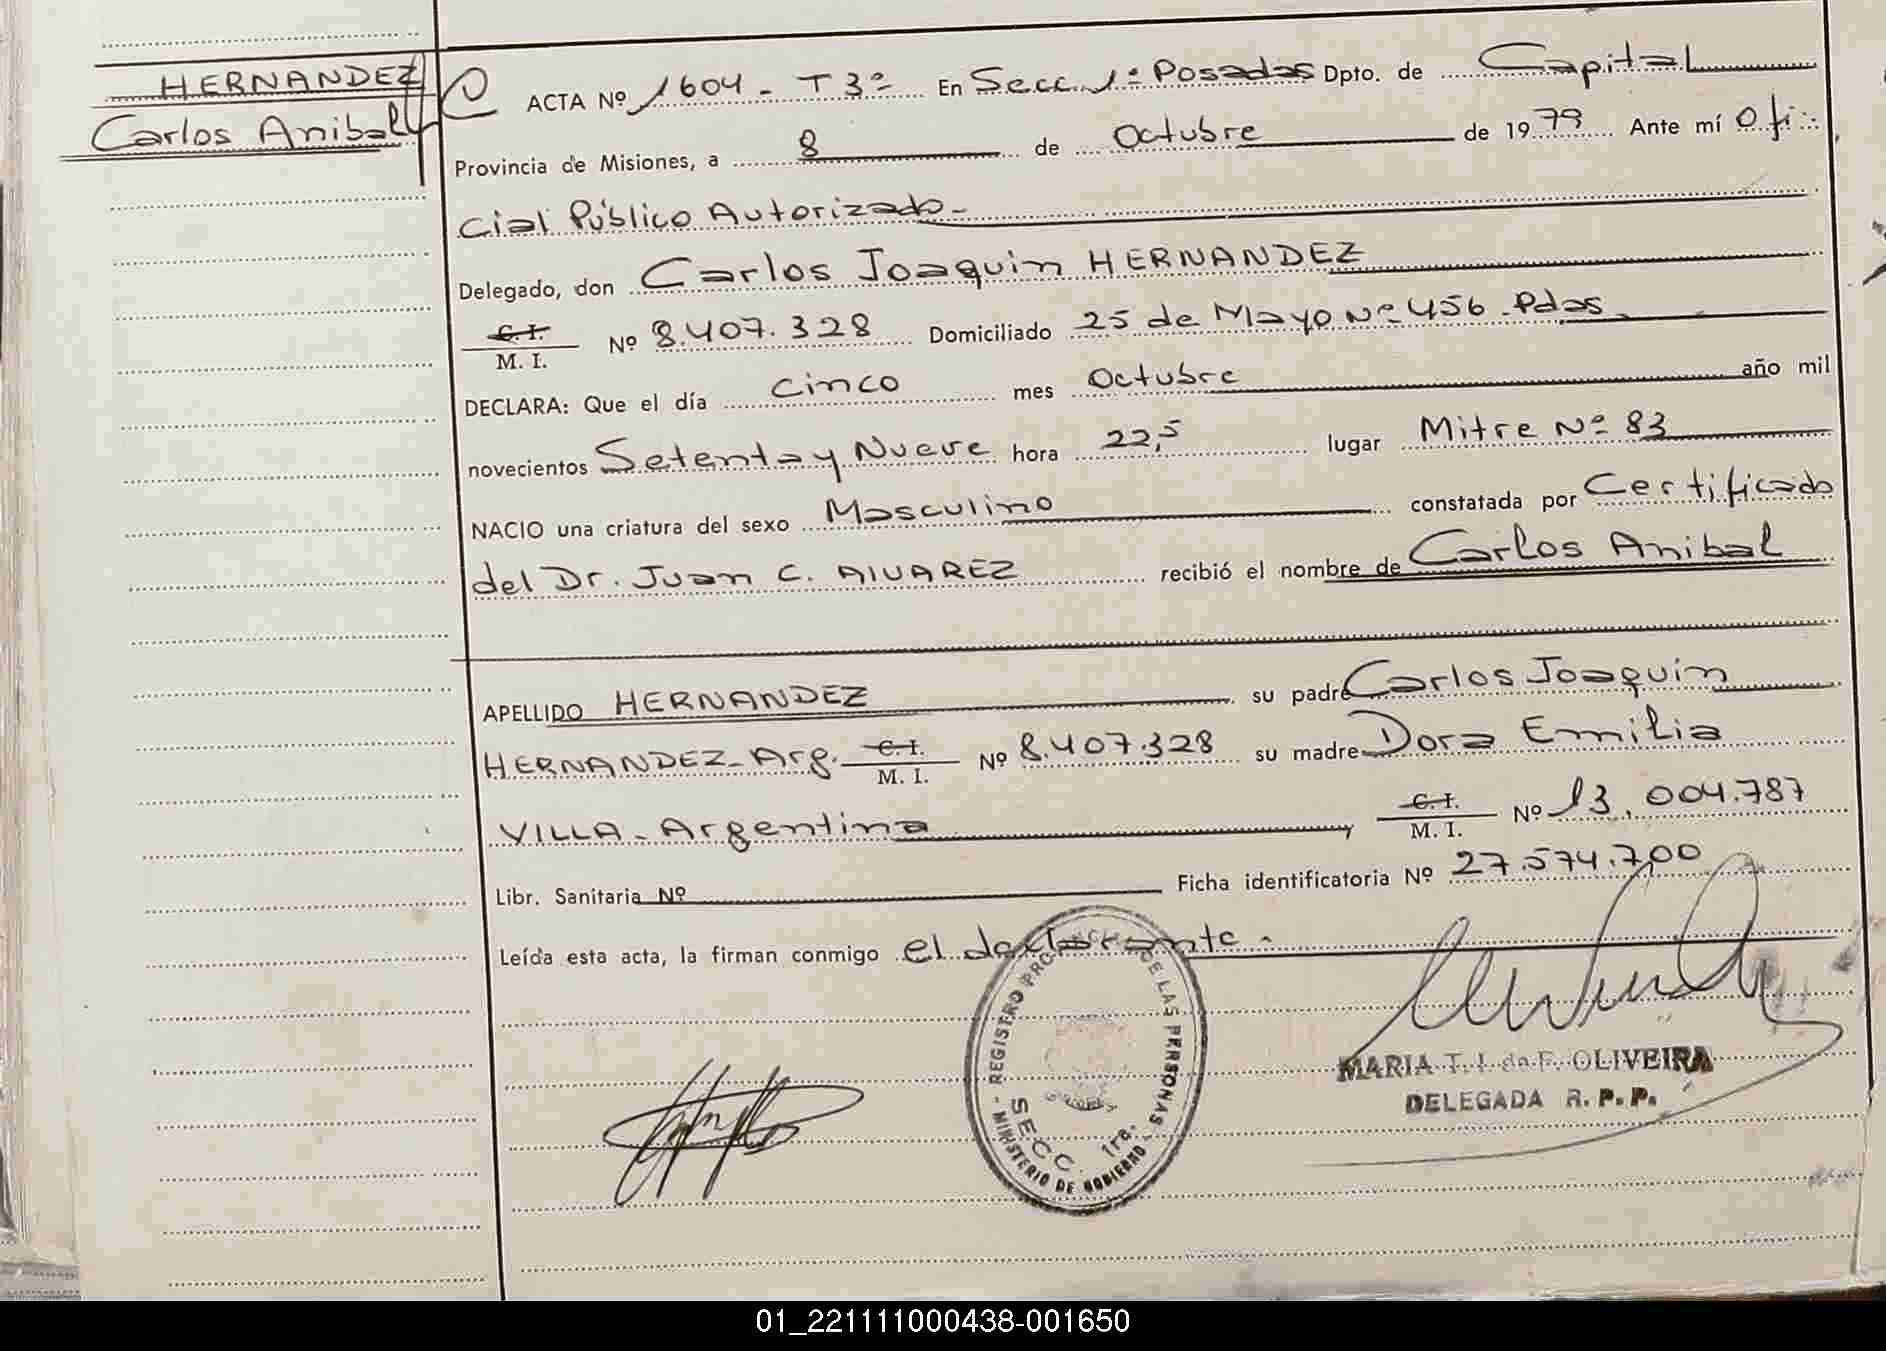 HERNANDEZ
Carlos Anibal
ACTA Nº 1604 - T 3º En Secc. 1ª Posadas Dpto. de Capital
Provincia de Misiones, a 8 de Octubre de 1979 Ante mí Ofi-
cial Público Autorizado-
Delegado, don Carlos Joaquin HERNANDEZ
C. I.
M. I. Nº 8.407.328 Domiciliado 25 de Mayo Nº 456 - Pdas.
DECLARA: Que el día cinco mes Octubre año mil
novecientos Setenta y Nueve hora 22,5 lugar Mitre Nº 83
NACIO una criatura del sexo Masculino constatada por Certificado
del Dr. Juan C. ALVAREZ recibió el nombre de Carlos Anibal
APELLIDO HERNANDEZ su padre Carlos Joaquin
HERNANDEZ - Arg. C. I.
M. I. Nº 8.407.328 su madre Dora Emilia
VILLA - Argentina C. I.
M. I. Nº 13.004.787
Libr. Sanitaria Nº Ficha identificatoria Nº 27.574.700
Leída esta acta, la firman conmigo el declarante.
- REGISTRO PROVINCIAL DE LAS PERSONAS -
SECC. 1ra.
MINISTERIO DE GOBIERNO
MARIA T. I. de F. OLIVEIRA
DELEGADA R. P. P.
01_221111000438-001650